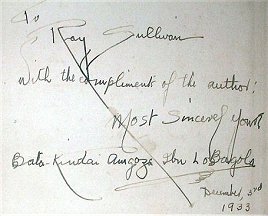 To
Ray Sullivan
With the compliments of the author:
Most Sincerely Yours
Bata Kindai Amgoza Ibn LoBagola
December, 3rd
1933